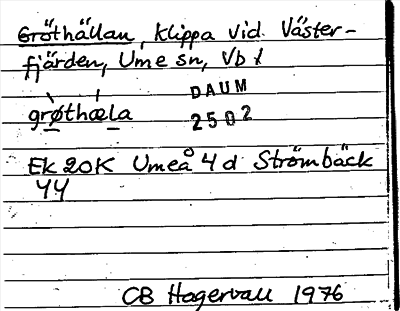 Gröthällan, klippa vid Väster-
fjärden, Ume sn, Vb l
grøthæla
DAUM
2502
Ek 20K Umeå 4 d Strömbäck
44
CB Hagervall 1976